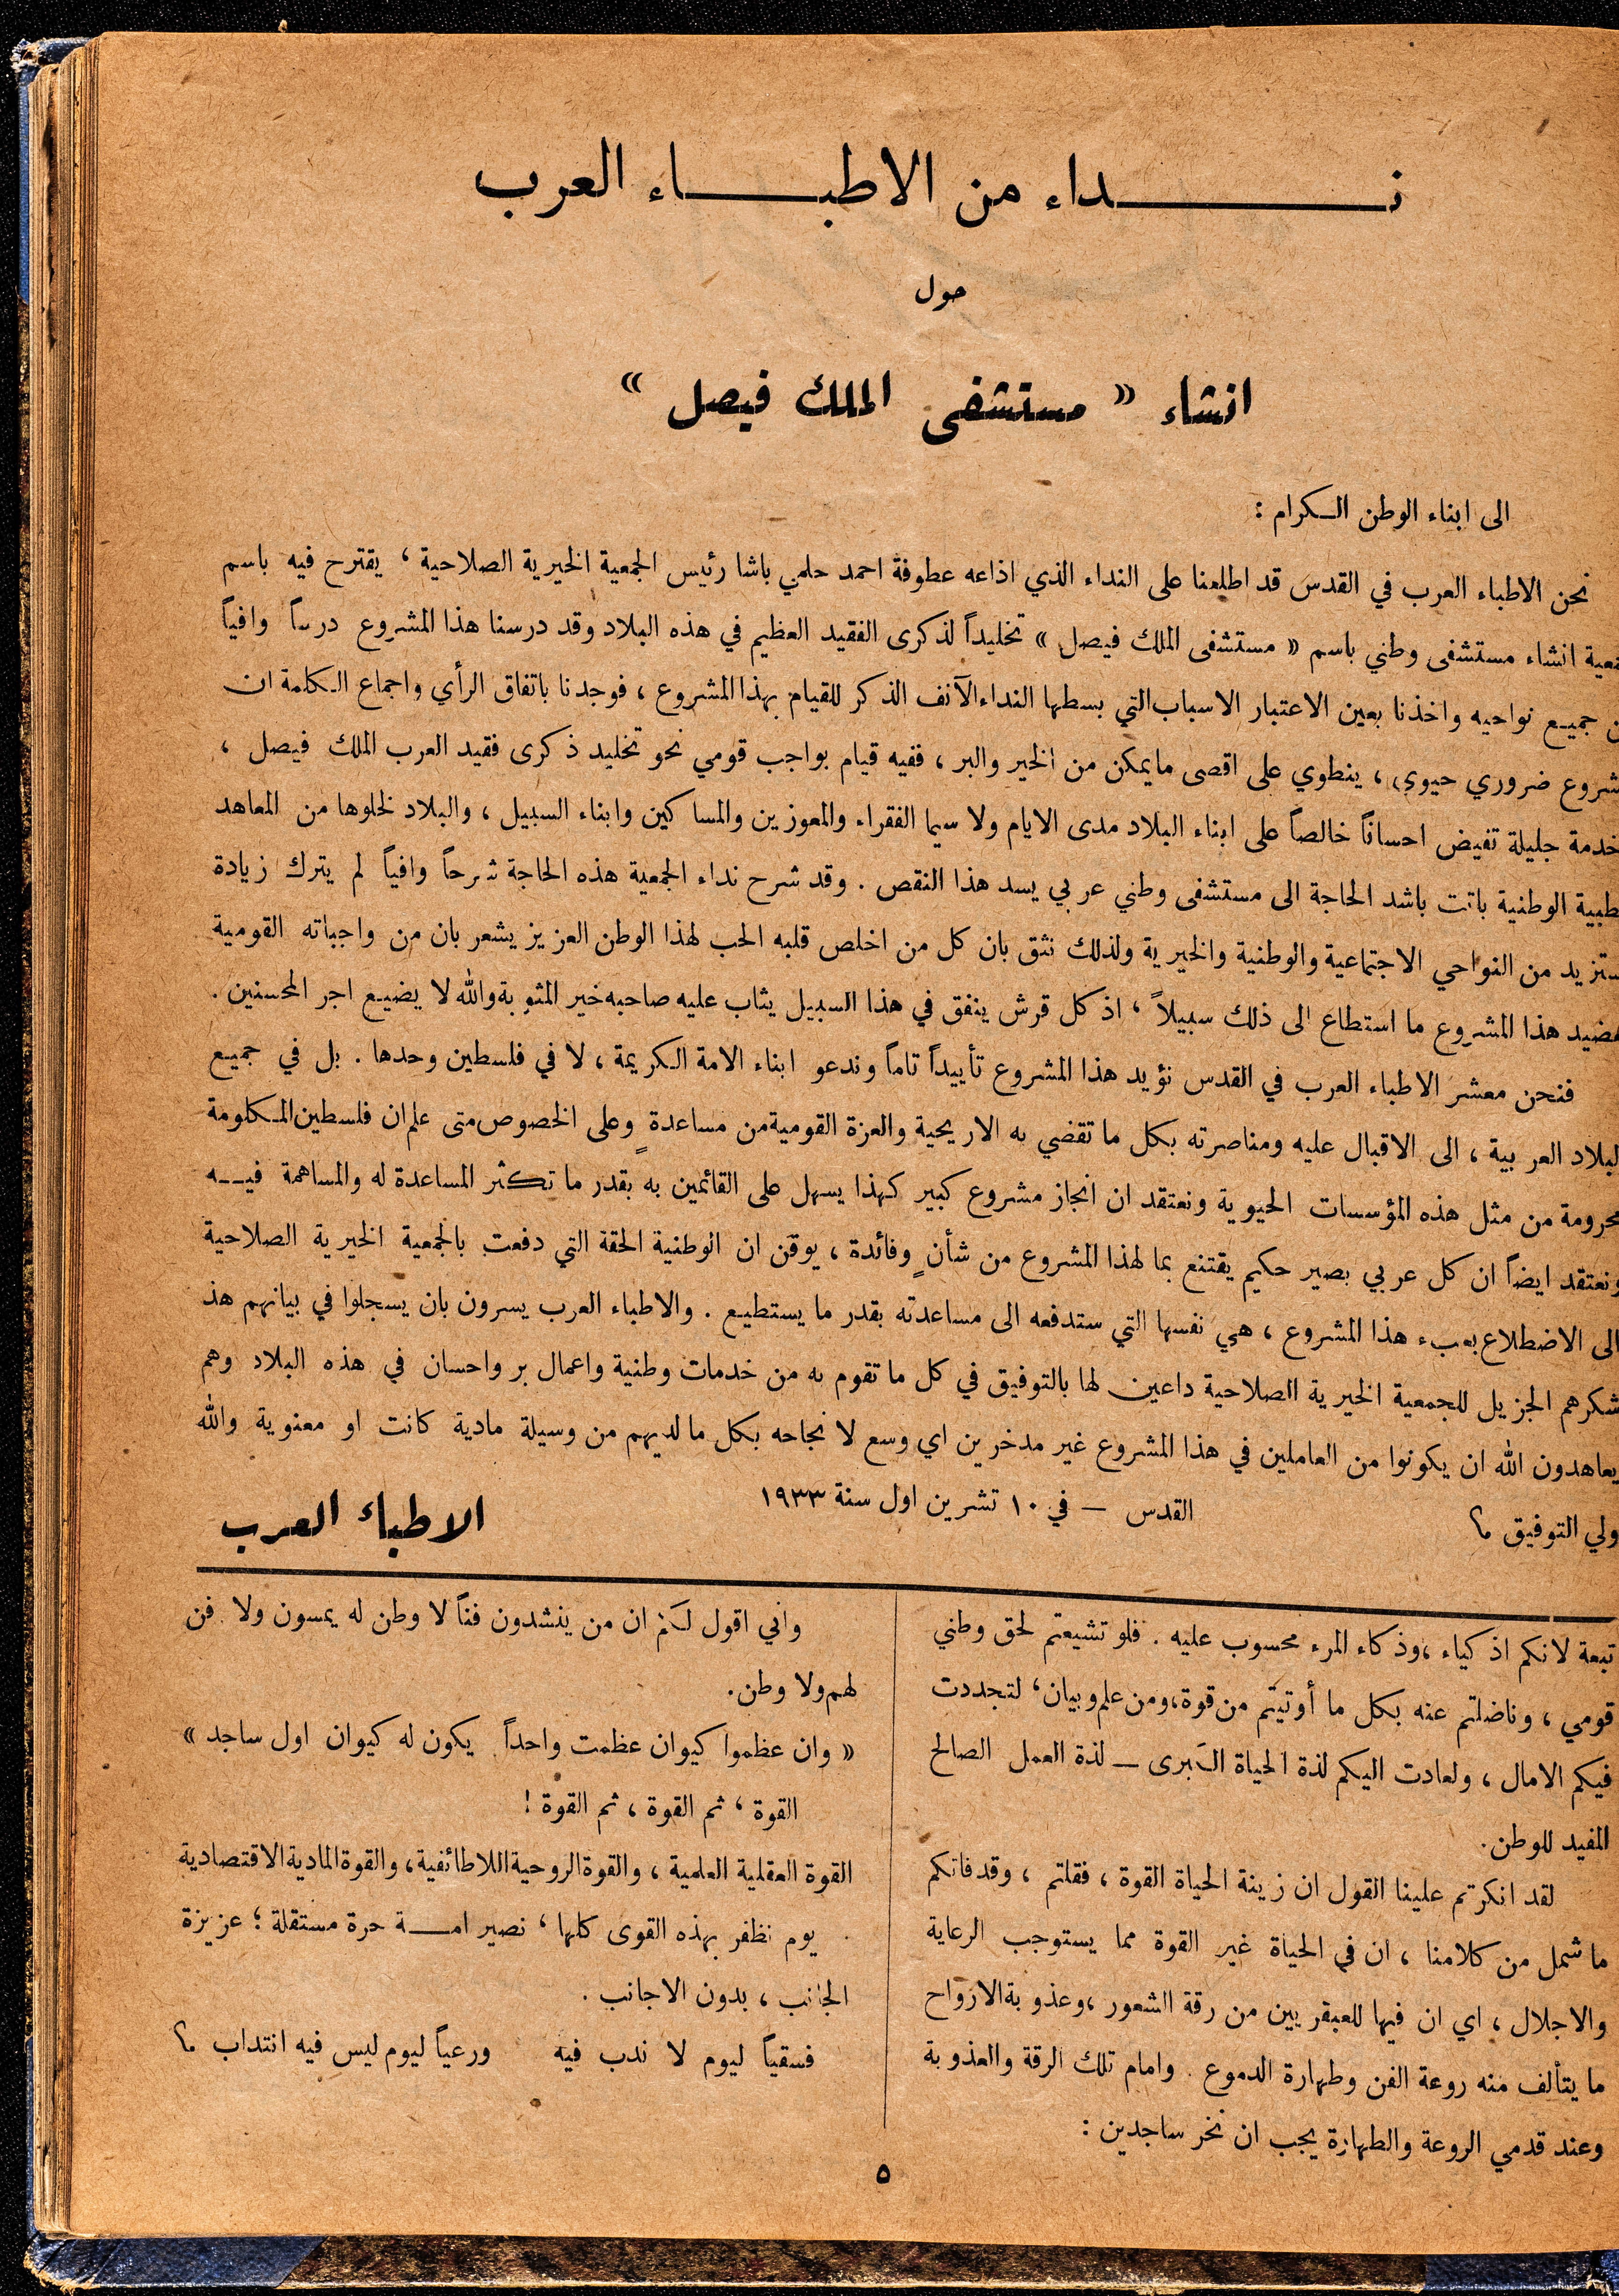 نداء من الاطباء العرب
حول
انشاء « مستشفى الملك فيصل »
الى ابناء الوطن الكرام :
نحن الاطباء العرب في القدس قد اطلعنا على النداء الذي اذاعه عطوفة احمد حلمي باشا رئيس الجمعية الخيرية الصلاحية ، يقترح فيه باسم
انشاء مستشفى وطني باسم « مستشفى الملك فيصل » تخليداً لذكرى الفقيد العظيم في هذه البلاد وقد درسنا هذا المشروع درساً وافياً
جميع نواحيه واخذنا بعين الاعتبار الاسباب التي بسطها النداء الآنف الذكر للقيام بهذا المشروع ، فوجدنا باتفاق الرأي واجماع الكلمة ان
ضروري حيوي ، ينطوي على اقصى مايمكن من الخير والبر ، ففيه قيام بواجب قومي نحو تخليد ذكرى فقيد العرب الملك فيصل ،
خدمة جليلة تفيض احساناً خالصاً على ابناء البلاد مدى الايام ولا سيما الفقراء والمعوزين والمساكين وابناء السبيل ، والبلاد لخلوها من المعاهد
الوطنية باتت باشد الحاجة الى مستشفى وطني عربي يسد هذا النقص . وقد شرح نداء الجمعية هذه الحاجة شرحاً وافياً لم يترك زيادة
من النواحي الاجتماعية والوطنية والخيرية ولذلك نثق بان كل من اخلص قلبه الحب لهذا الوطن العزيز يشعر بان من واجباته القومية
هذا المشروع ما استطاع الى ذلك سبيلاً ، اذ كل قرش ينفق في هذا السبيل يثاب عليه صاحبه خير المثوبة والله لا يضيع اجر المحسنين .
فنحن معشر الاطباء العرب في القدس نؤيد هذا المشروع تأييداً تاماً وندعو ابناء الامة الكريمة ، لا في فلسطين وحدها . بل في جميع
البلاد العربية ، الى الاقبال عليه ومناصرته بكل ما تقضي به الاريحية والعزة القومية من مساعدةٍ وعلى الخصوص متى علم ان فلسطين المكلومة
محرومة من مثل هذه المؤسسات الحيوية ونعتقد ان انجاز مشروع كبير كهذا يسهل على القائمين به بقدر ما تكثر المساعدة له والمساهمة فيه
ونعتقد ايضاً ان كل عربي بصير حكيم يقتنع بما لهذا المشروع من شأنٍ وفائدة ، يوقن ان الوطنية الحقة التي دفعت بالجمعية الخيرية الصلاحية
الى الاضطلاع بعبء هذا المشروع ، هي نفسها التي ستدفعه الى مساعدته بقدر ما يستطيع . والاطباء العرب يسرون بان يسجلوا في بيانهم هذ
شكرهم الجزيل للجمعية الخيرية الصلاحية داعين لها بالتوفيق في كل ما تقوم به من خدمات وطنية واعمال بر واحسان في هذه البلاد وهم
يعاهدون الله ان يكونوا من العاملين في هذا المشروع غير مدخرين اي وسع لانجاحه بكل ما لديهم من وسيلة مادية كانت او معنوية والله
ولي التوفيق ؟
القدس — في ١٠ تشرين اول سنة ١٩٣٣
الاطباء العرب
تبعة لانكم اذكياء ، وذكاء المرء محسوب عليه . فلو تشيعتم لحق وطني
قومي ، وناضلتم عنه بكل ما أوتيتم من قوة ، ومن علم وبيان ، لتجددت
فيكم الامال ، ولعادت اليكم لذة الحياة الكبرى — لذة العمل الصالح
المفيد للوطن .
لقد انكرتم علينا القول ان زينة الحياة القوة ، فقلتم ، وقد فاتكم
ما شمل من كلامنا ، ان في الحياة غير القوة مما يستوجب الرعاية
والاجلال ، اي ان فيها للعبقريين من رقة الشعور ، وعذوبة الارواح
ما يتألف منه روعة الفن وطهارة الدموع . وامام تلك الرقة والعذوبة
وعند قدمي الروعة والطهارة يجب ان نخر ساجدين :
واني اقول لكم ان من ينشدون فناً لا وطن له يمسون ولا فن
لهم ولا وطن .
« وان عظموا كيوان عظمت واحداً يكون له كيوان اول ساجد »
القوة ، ثم القوة ، ثم القوة !
القوة العقلية العلمية ، والقوة الروحية اللاطائفية ، والقوة المادية الاقتصادية
. يوم نظفر بهذه القوى كلها ، نصير امة حرة مستقلة ؛ عزيزة
الجانب ، بدون الاجانب .
فسقياً ليوم لا ندب فيه ورعياً ليوم ليس فيه انتداب ؟
٥